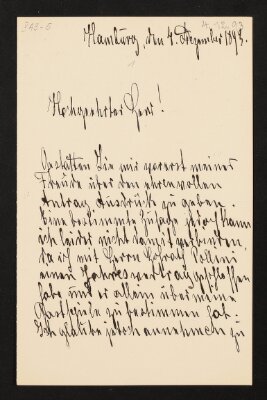 PA3-6
4.12.93
Hamburg, den 4. Dezember 1893.
1
Hochgeehrter Herr!
Gestatten Sie mir vorerst meiner
Freude über den ehrenvollen
Antrag Ausdruck zu geben.
Eine bestimmte Zusage jedoch kann
ich leider nicht damit verbinden,
da ich mit Herrn Hofrath Pollini
einen Jahresvertrag geschlossen
habe und er allein über meine
Gastspiele zu bestimmen hat.
Ich glaube jedoch annehmen zu